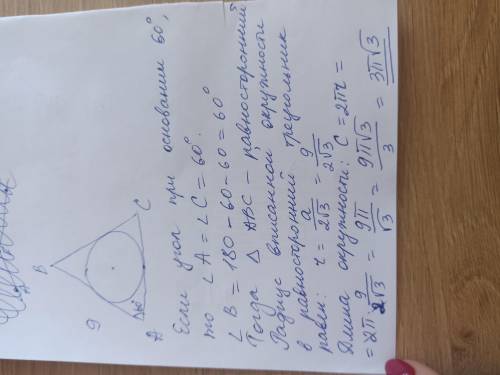 B
9
60°
A
C
Если угол при основании 60°,
то ∠A = ∠C = 60°.
∠B = 180 - 60 - 60 = 60°
Тогда △ ABC - равносторонний
Радиус вписанной окружности
в равносторонний треугольник
равен: r = a/2√3 = 9/2√3
Длина окружности: C = 2πr =
= 2π · 9/2√3 = 9π/√3 = 9π√3/3 = 3π√3